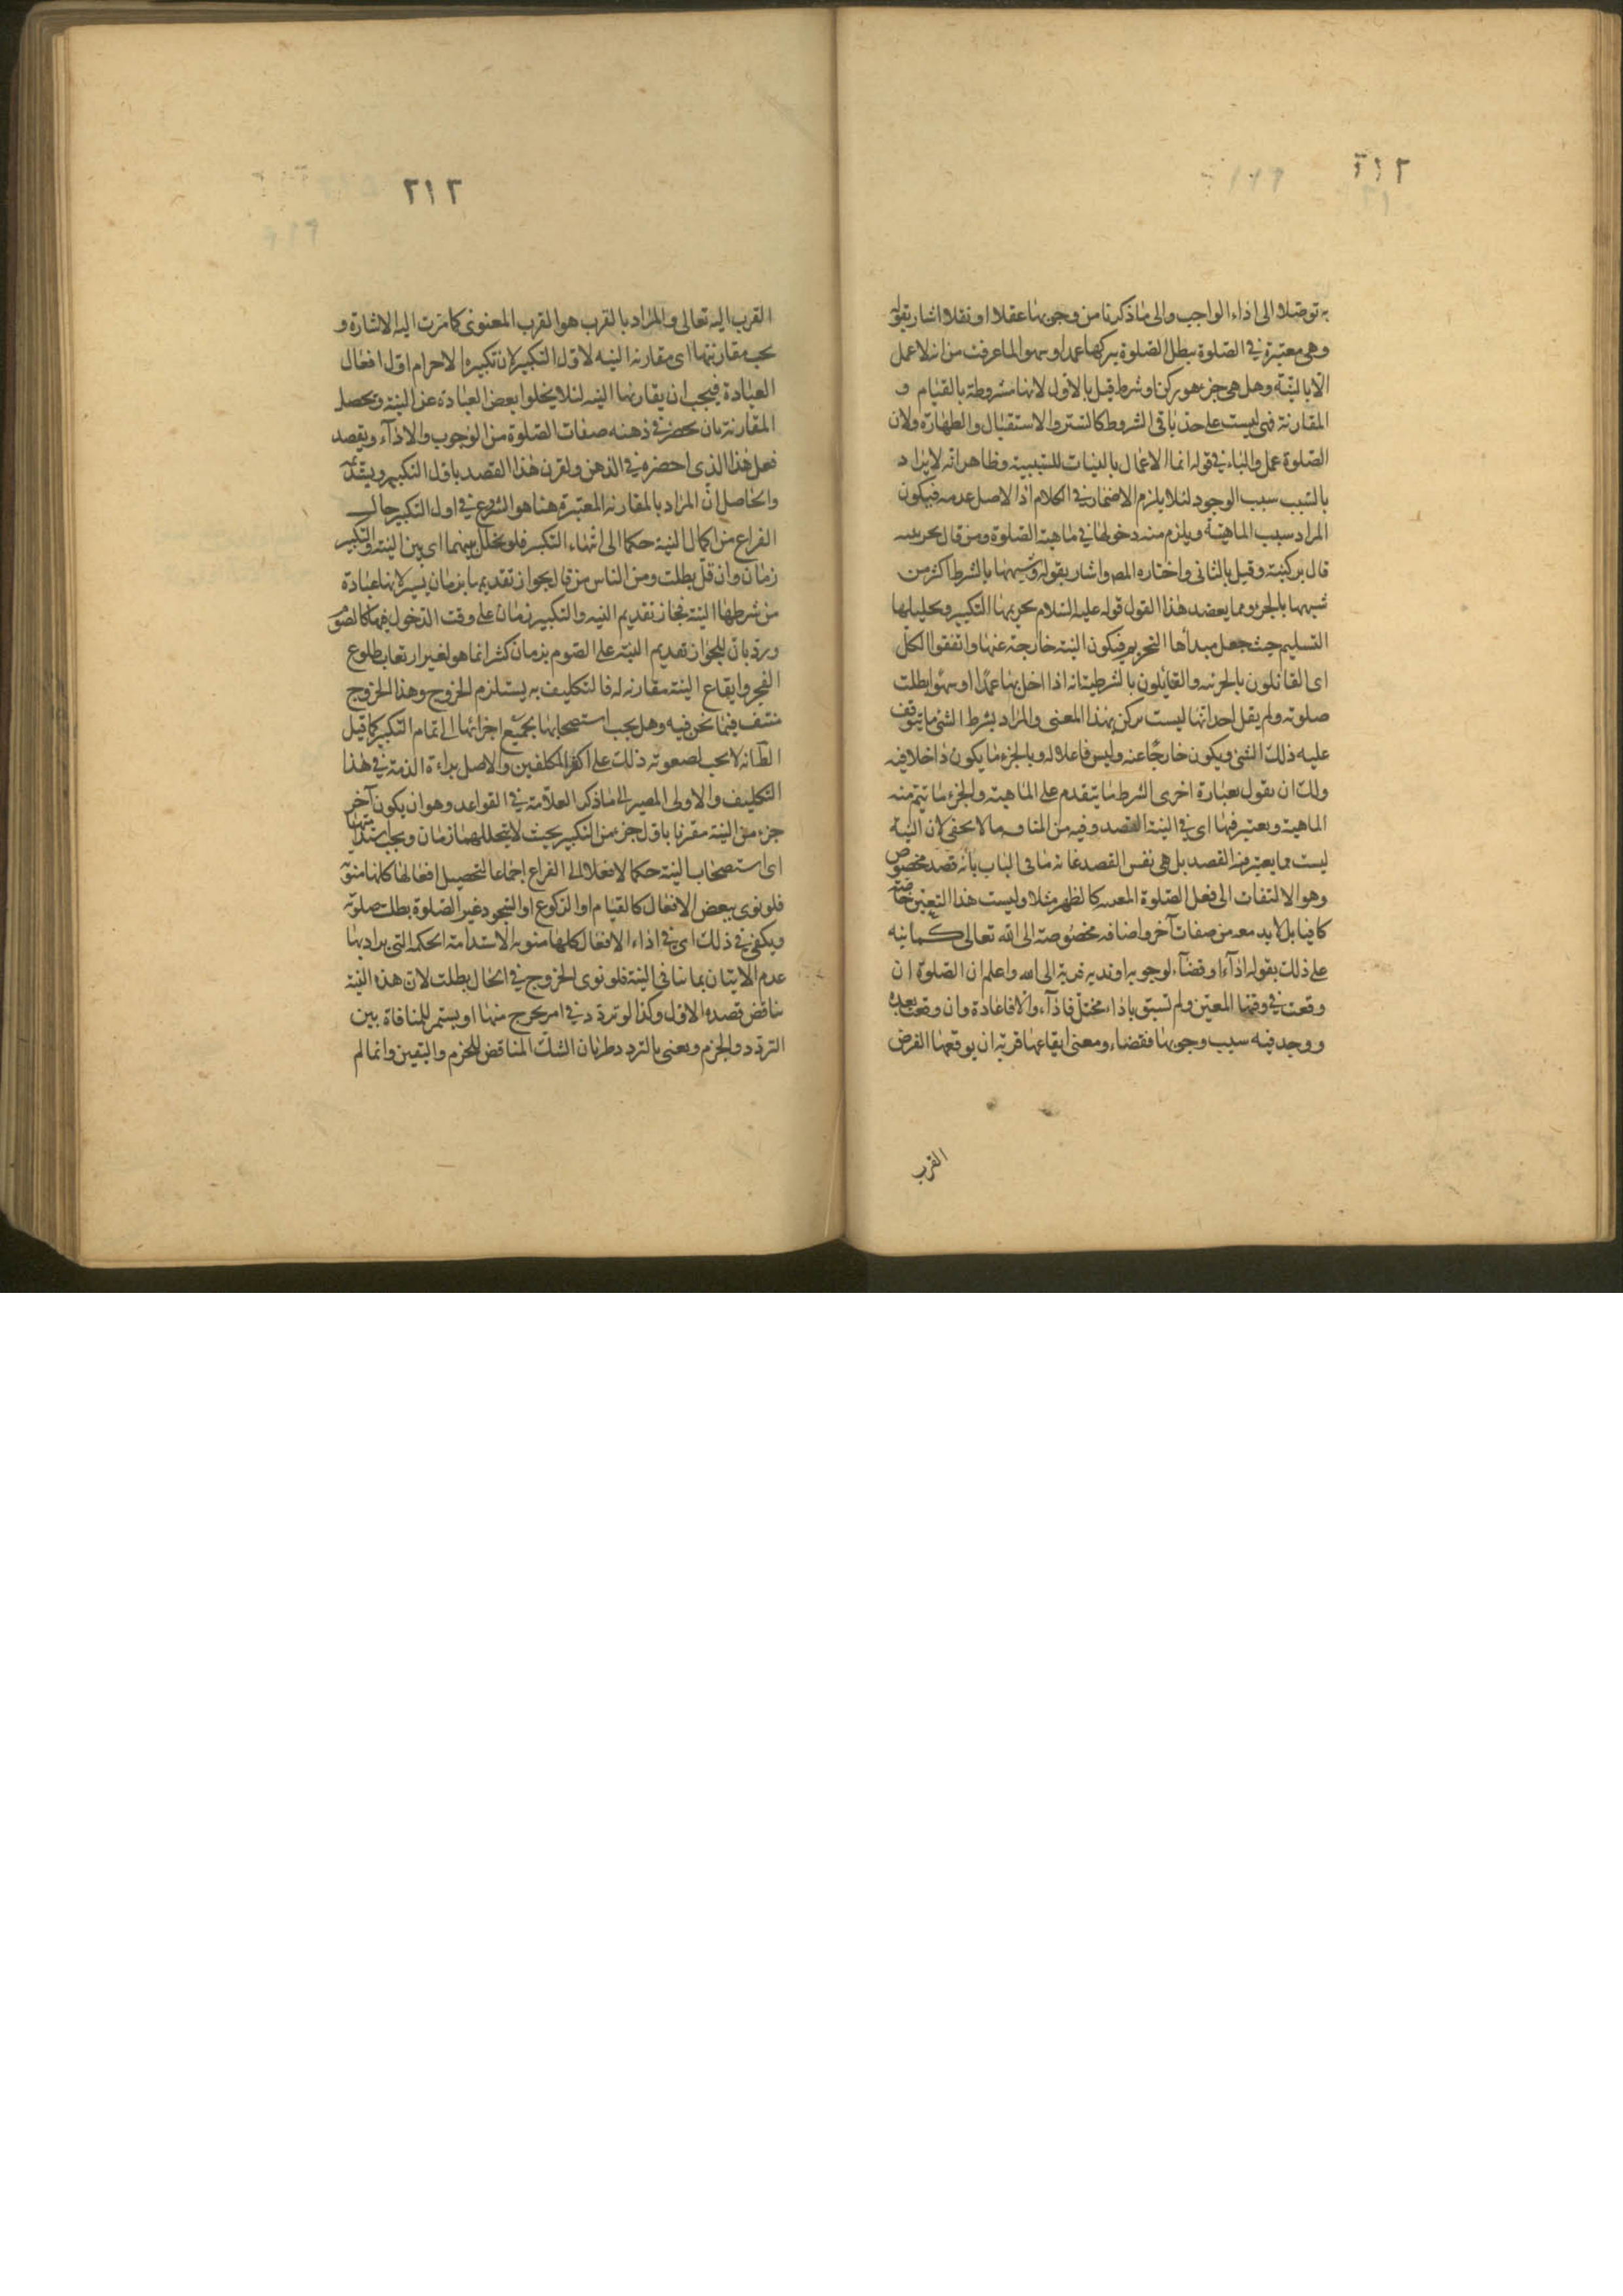 ٢١٢
به توصلا الى اداء الواجب والى ما ذكرنا من وجوبها عقلا او نقلا اشار بقوله
وهى معتبرة فى الصلوة يبطل الصلوة بتركها عمدا وسهوا لما عرفت من انه لا عمل
الا بالنية وهل هى جزء هو ركن او شرط قيل بالاول لانها مشروطة بالقيام و
المقارنة فهى ليست على حد باقى الشروط كالستر والاستقبال والطهارة ولان
الصلوة عمل والباء فى قوله انما الاعمال بالنيات للسببية وظاهر انه لا يراد
بالسبب سبب الوجود لئلا يلزم الاضمار فى الكلام اذ الاصل عدمه فيكون
المراد سبب الماهية ويلزم منه دخولها فى ماهية الصلوة ومن قال بجزئيته
قال بركنيته وقيل بالثانى واختاره المص واشار بقوله وشبهها بالشرط اكثر من
شبهها بالجزء ومما يعضد هذا القول قوله عليه السلام تحريمها التكبير وتحليلها
التسليم حيث جعل مبدأها التحريم فيكون النية خارجة عنها واتفقوا الكل
اى القائلون بالجزئيه والقايلون بالشرطية انه اذا اخل بها عمدا او سهوا بطلت
صلوته ولم يقل احد انها ليست بركن بهذا المعنى والمراد بشرط الشئ ما يتوقف
عليه ذلك الشئ ويكون خارجا عنه وليس فاعلا له وبالجزء ما يكون داخلا فيه
ولك ان تقول بعبارة اخرى الشرط ما يتقدم على الماهية والجزء ما تتم منه
الماهية ويعتبر فيها اى فى النية القصد وفيه من المنافـ ما لا يخفى لان النية
ليست مما يعتبر فيه القصد بل هى نفس القصد غاية ما فى الباب بانه قصد مخصوص
وهو الالتفات الى فعل الصلوة المعينه كالظهر مثلا وليست هذا التعين خاصة
كافيا بل لا بد معه من صفات آخر واضافه مخصوصة الى الله تعالى كما نبه
على ذلك بقوله اداء او قضاء لوجوبه او ندبه قربة الى الله واعلم ان الصلوة ان
وقعت فى وقتها المعين ولم تسبق باداء مختل فاداء والا فاعادة وان وقعت بعده
ووجد فيه سبب وجوبها فقضاء ومعنى ايقاعها قربة ان يوقعها الغرض
القرب
٢١٣
القرب اليه تعالى والمراد بالقرب هو القرب المعنوى كما مرت اليه الاشارة و
يجب مقارنتها اى مقارنه النيه لاول التكبير لان تكبيرة الاحرام اول افعال
العبادة فيجب ان يقارنها النيه لئلا يخلوا بعض العبادة عن النية وتحصل
المقارنة بان يحضر فى ذهنه صفات الصلوة من الوجوب والاداء ويقصد
فعل هذا الذى احضره فى الذهن ولقرن هذا القصد باول التكبير ويبتدئه
والحاصل ان المراد بالمقارنه المعتبرة هنا هو الشروع فى اول التكبير حال
الفراغ من اكمال النية حكما الى انتهاء التكبير فلو تخلل بينهما اى بين النية والتكبير
زمان وان قل بطلت ومن الناس من قال بجواز تقديمها بزمان يسير لانها عبادة
من شرطها النية فجاز تقديم النيه والتكبير زمان على وقت الدخول فيها كالصوم
ورد بان الجواز تقديم النية على الصوم بزمان كثير انما هو لغير ارتعاب طلوع
الفجر وايقاع النية مقارنه له فالتكليف به يستلزم الحرج وهذا الحرج
منتف فيما نحن فيه وهل يجب استصحابها بجميع اجزائها الى تمام التكبير كما قيل
الظانه لا يجب لصعوبة ذلك على اكثر المكلفين والاصل براءة الذمة فى هذا
التكليف والاولى المصير الى ما ذكره العلامة فى القواعد وهو ان يكون آخر
جزء من النية مقرنا باول جزء من التكبير بحيث لا يتخللهما زمان ويجب استدامتها
اى استصحاب النية حكما لا فعلا الى الفراغ اجماعا لتحصيل افعالها كلها منوية
فلو نوى ببعض الافعال كالقيام او الركوع او السجود غير الصلوة بطلت صلوته
ويكفى فى ذلك اى فى اداء الافعال كلها منويه الاستدامة الحكمه التى يراد بها
عدم الاتيان بما ينافى النية فلو نوى الخروج فى الحال بطلت لان هذه النية
تناقض قصده الاول وكذا لو تردد فى امر يخرج منها او يستمر للمنافاة بين
التردد والجزم ويعنى بالتردد طريان الشك المناقض للجزم واليقين وانما لم